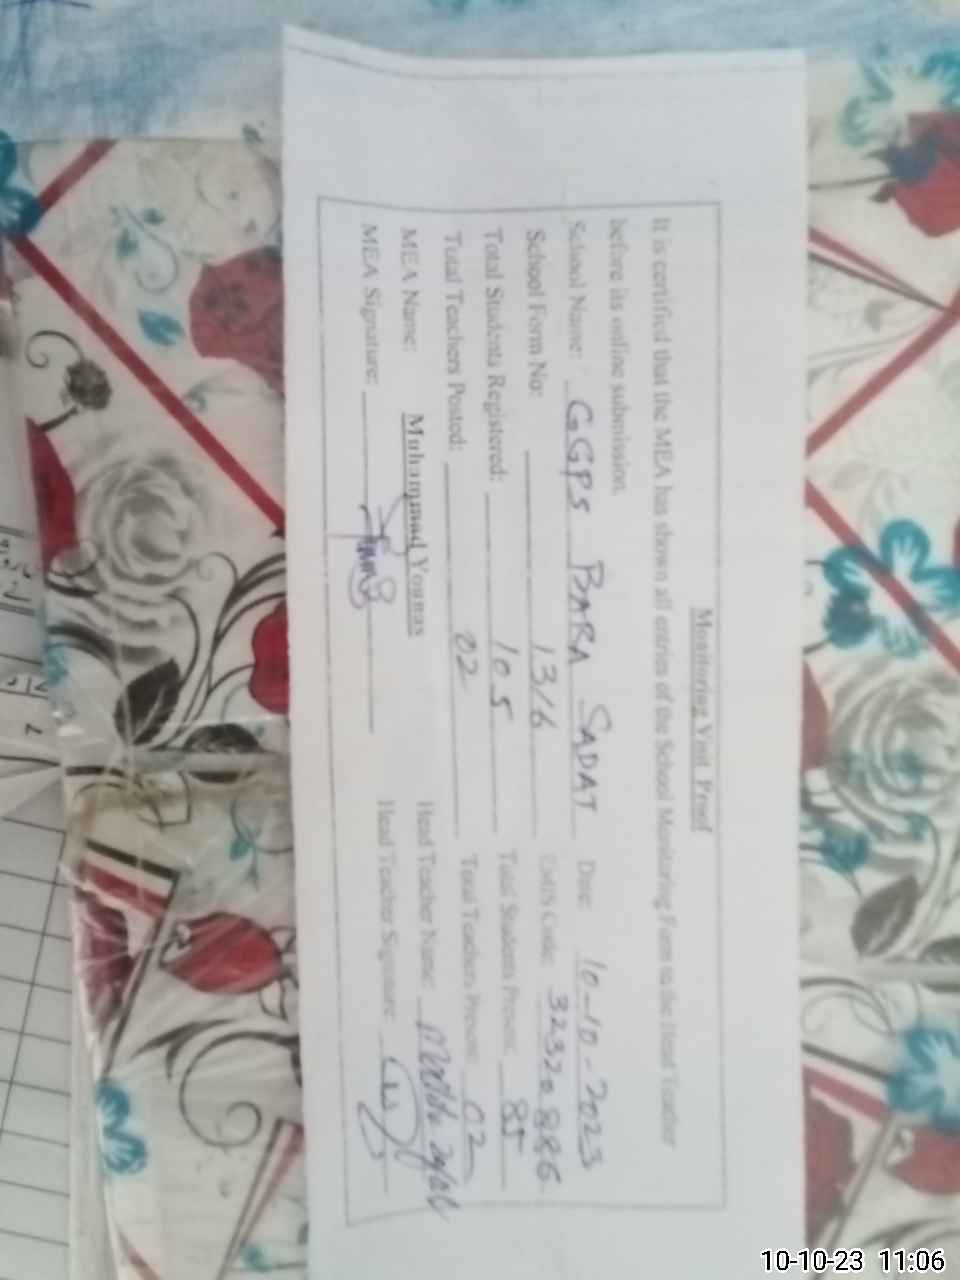 Monitoring Visit Proof
It is certified that the MEA has shown all entries of the School Monitoring Form to the Head Teacher
before its online submission.
School Name: GGPS BARA SADAT Date: 10-10-2023
School Form No: 1316 EMIS Code: 32320886
Total Students Registered: 105 Total Students Present: 85
Total Teachers Posted: 02 Total Teachers Present: 02
MEA Name: Muhammad Younas Head Teacher Name:
MEA Signature: Head Teacher Signature:
10-10-23 11:06